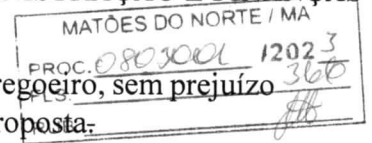 MATÕES DO NORTE / MA
PROC. 0803001 /2023
FLS. 360
regoeiro, sem prejuízo
roposta.